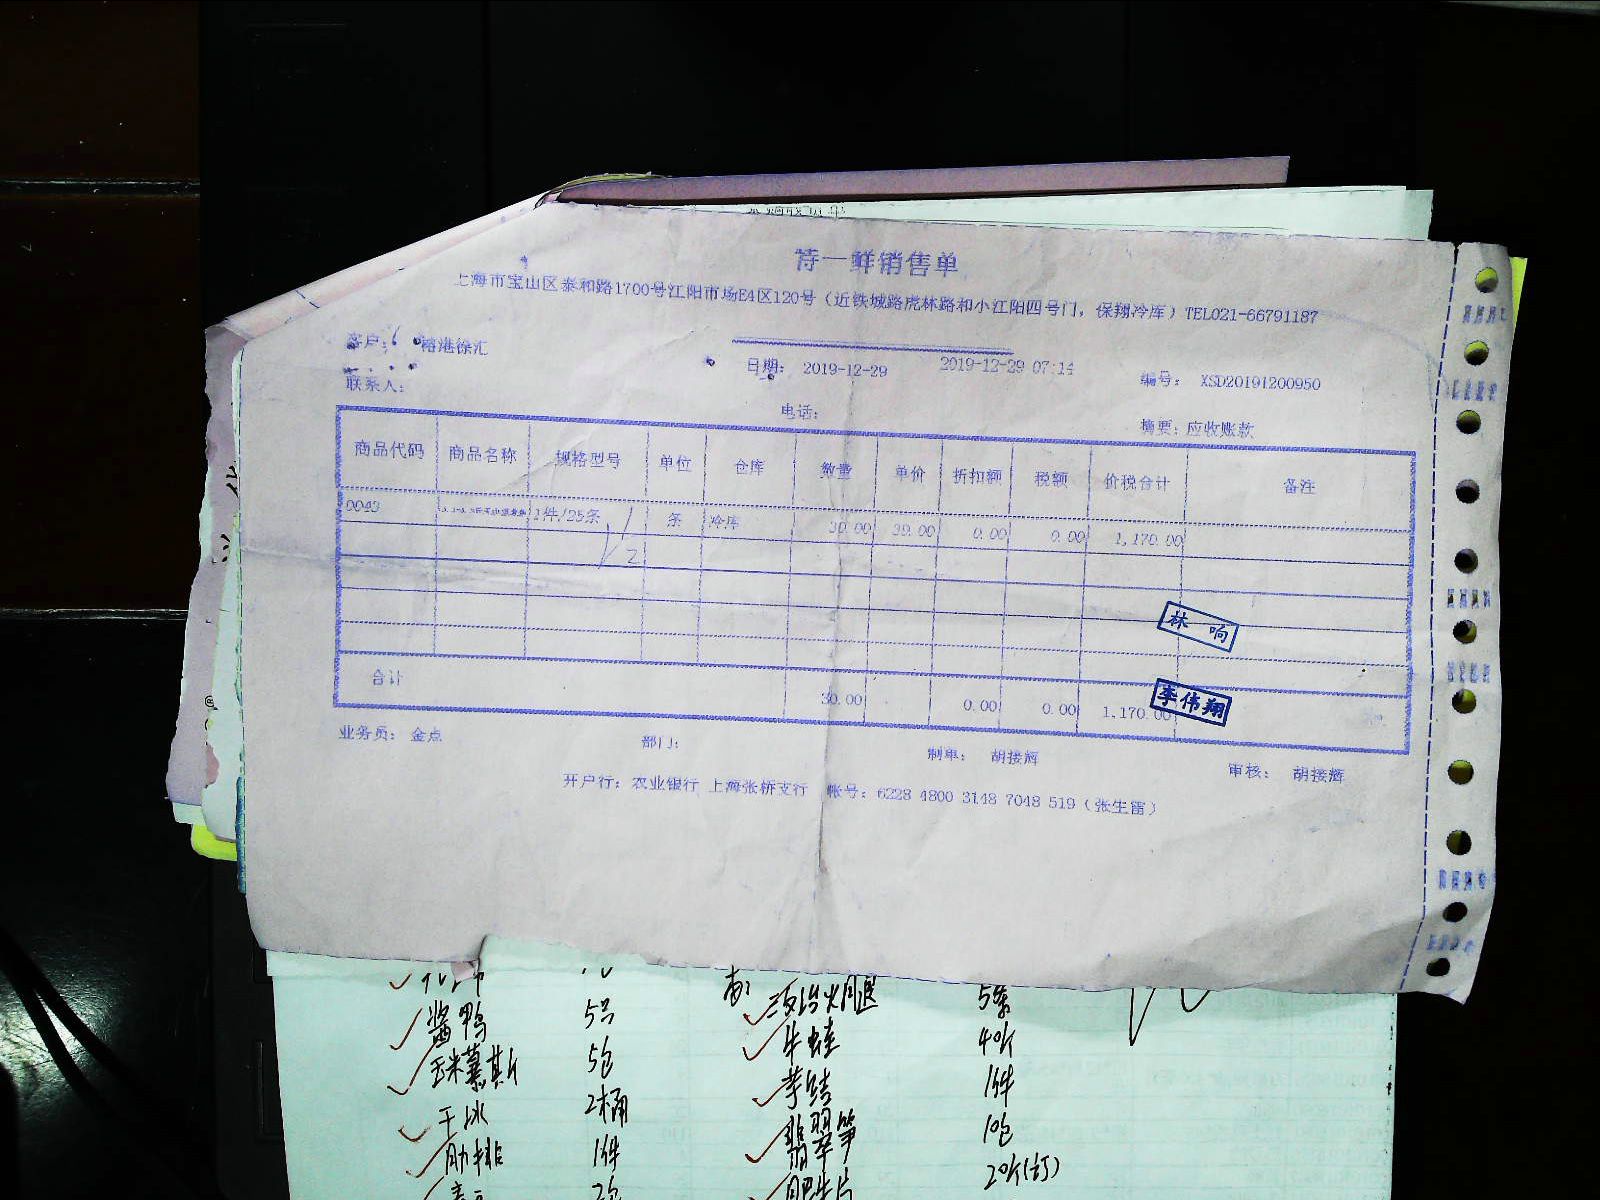 诗一鲜销售单
上海市宝山区泰和路1700号江阳市场E4区120号（近铁城路虎林路和小江阳四号门，保翔冷库）TEL021-66791187
客户： 裕港徐汇
日期： 2019-12-29 2019-12-29 07:14
编号： XSD20191200950
联系人：
电话：
摘要：应收账款
商品代码 商品名称 规格型号 单位 仓库 数量 单价 折扣额 税额 价税合计 备注
0043 1件/25条 条 冷库 30.00 39.00 0.00 0.00 1,170.00
林响
合计 30.00 0.00 0.00 1,170.00
李伟翔
业务员： 金点 部门： 制单： 胡接辉 审核： 胡接辉
开户行：农业银行 上海张桥支行 帐号：6228 4800 3148 7048 519（张生雷）
酱鸭 5只
玉米慕斯 5包
干冰 2桶
肋排 1件
5条
牛蛙 40斤
1件
翡翠笋 10包
20斤